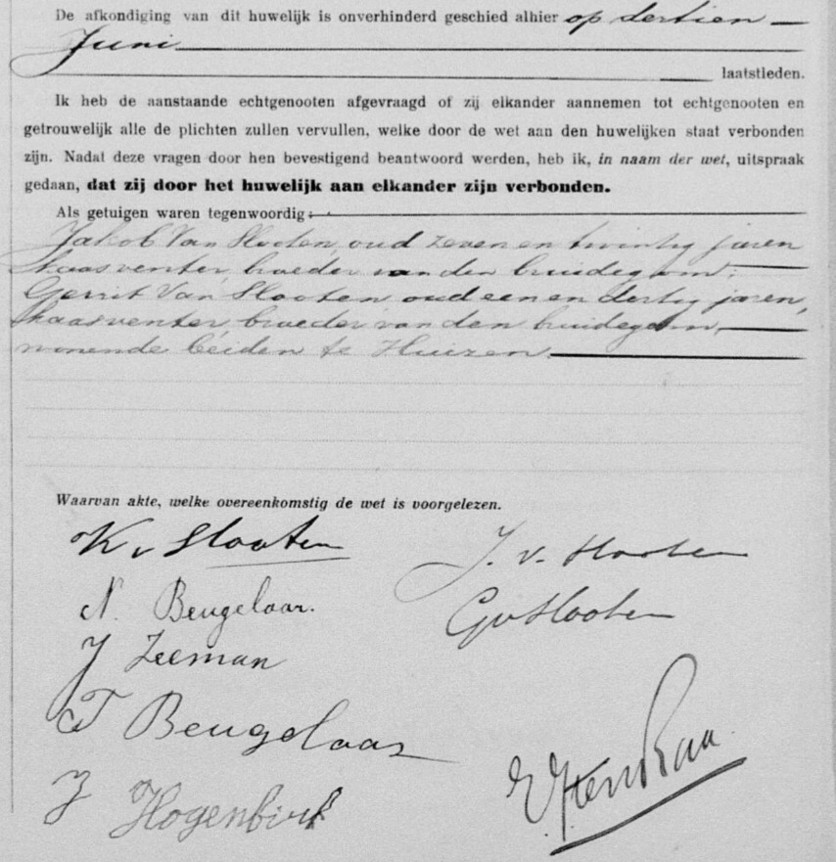 De afkondiging van dit huwelijk is onverhinderd geschied alhier op dertien
Juni
laatstleden.
Ik heb de aanstaande echtgenooten afgevraagd of zij elkander aannemen tot echtgenooten en
getrouwelijk alle de plichten zullen vervullen, welke door de wet aan den huwelijken staat verbonden
zijn. Nadat deze vragen door hen bevestigend beantwoord werden, heb ik, in naam der wet, uitspraak
gedaan, dat zij door het huwelijk aan elkander zijn verbonden.
Als getuigen waren tegenwoordig:
Jakob Van Slooten, oud zeven en twintig jaren
kaasventer, broeder van den bruidegom;
Gerrit Van Slooten oud een en dertig jaren,
kaasventer, broeder van den bruidegom,
wonende beiden te Huizen.
Waarvan akte, welke overeenkomstig de wet is voorgelezen.
K v Slooten
J. v. Slooten
N. Beugelaar.
GvSlooten
J Zeeman
T Beugelaar
J Hogenbirk